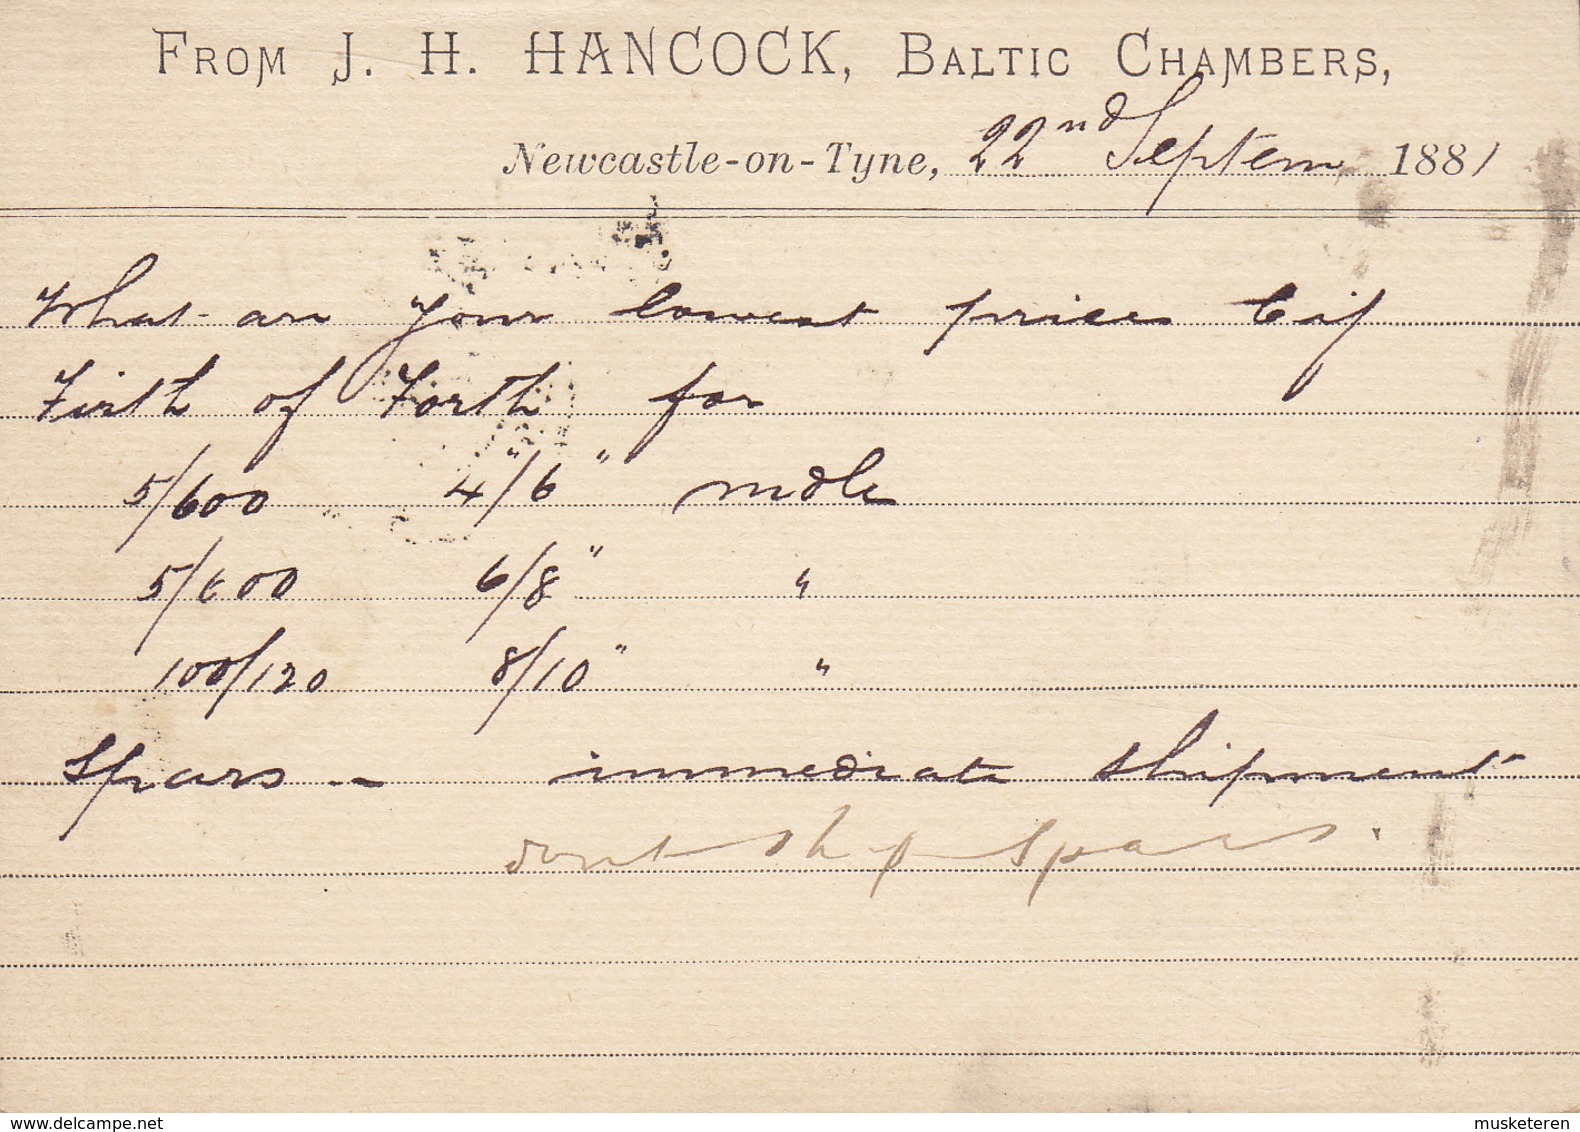 FROM J. H. HANCOCK, BALTIC CHAMBERS,
Newcastle-on-Tyne, 22nd Septem 1881
What are your lowest prices Cif
Firth of Forth for
5/600 4"/6" mdle
5/600 6/8" "
100/120 8/10" "
Spars - immediate shipment
dont ship spars.
www.delcampe.net
musketeren